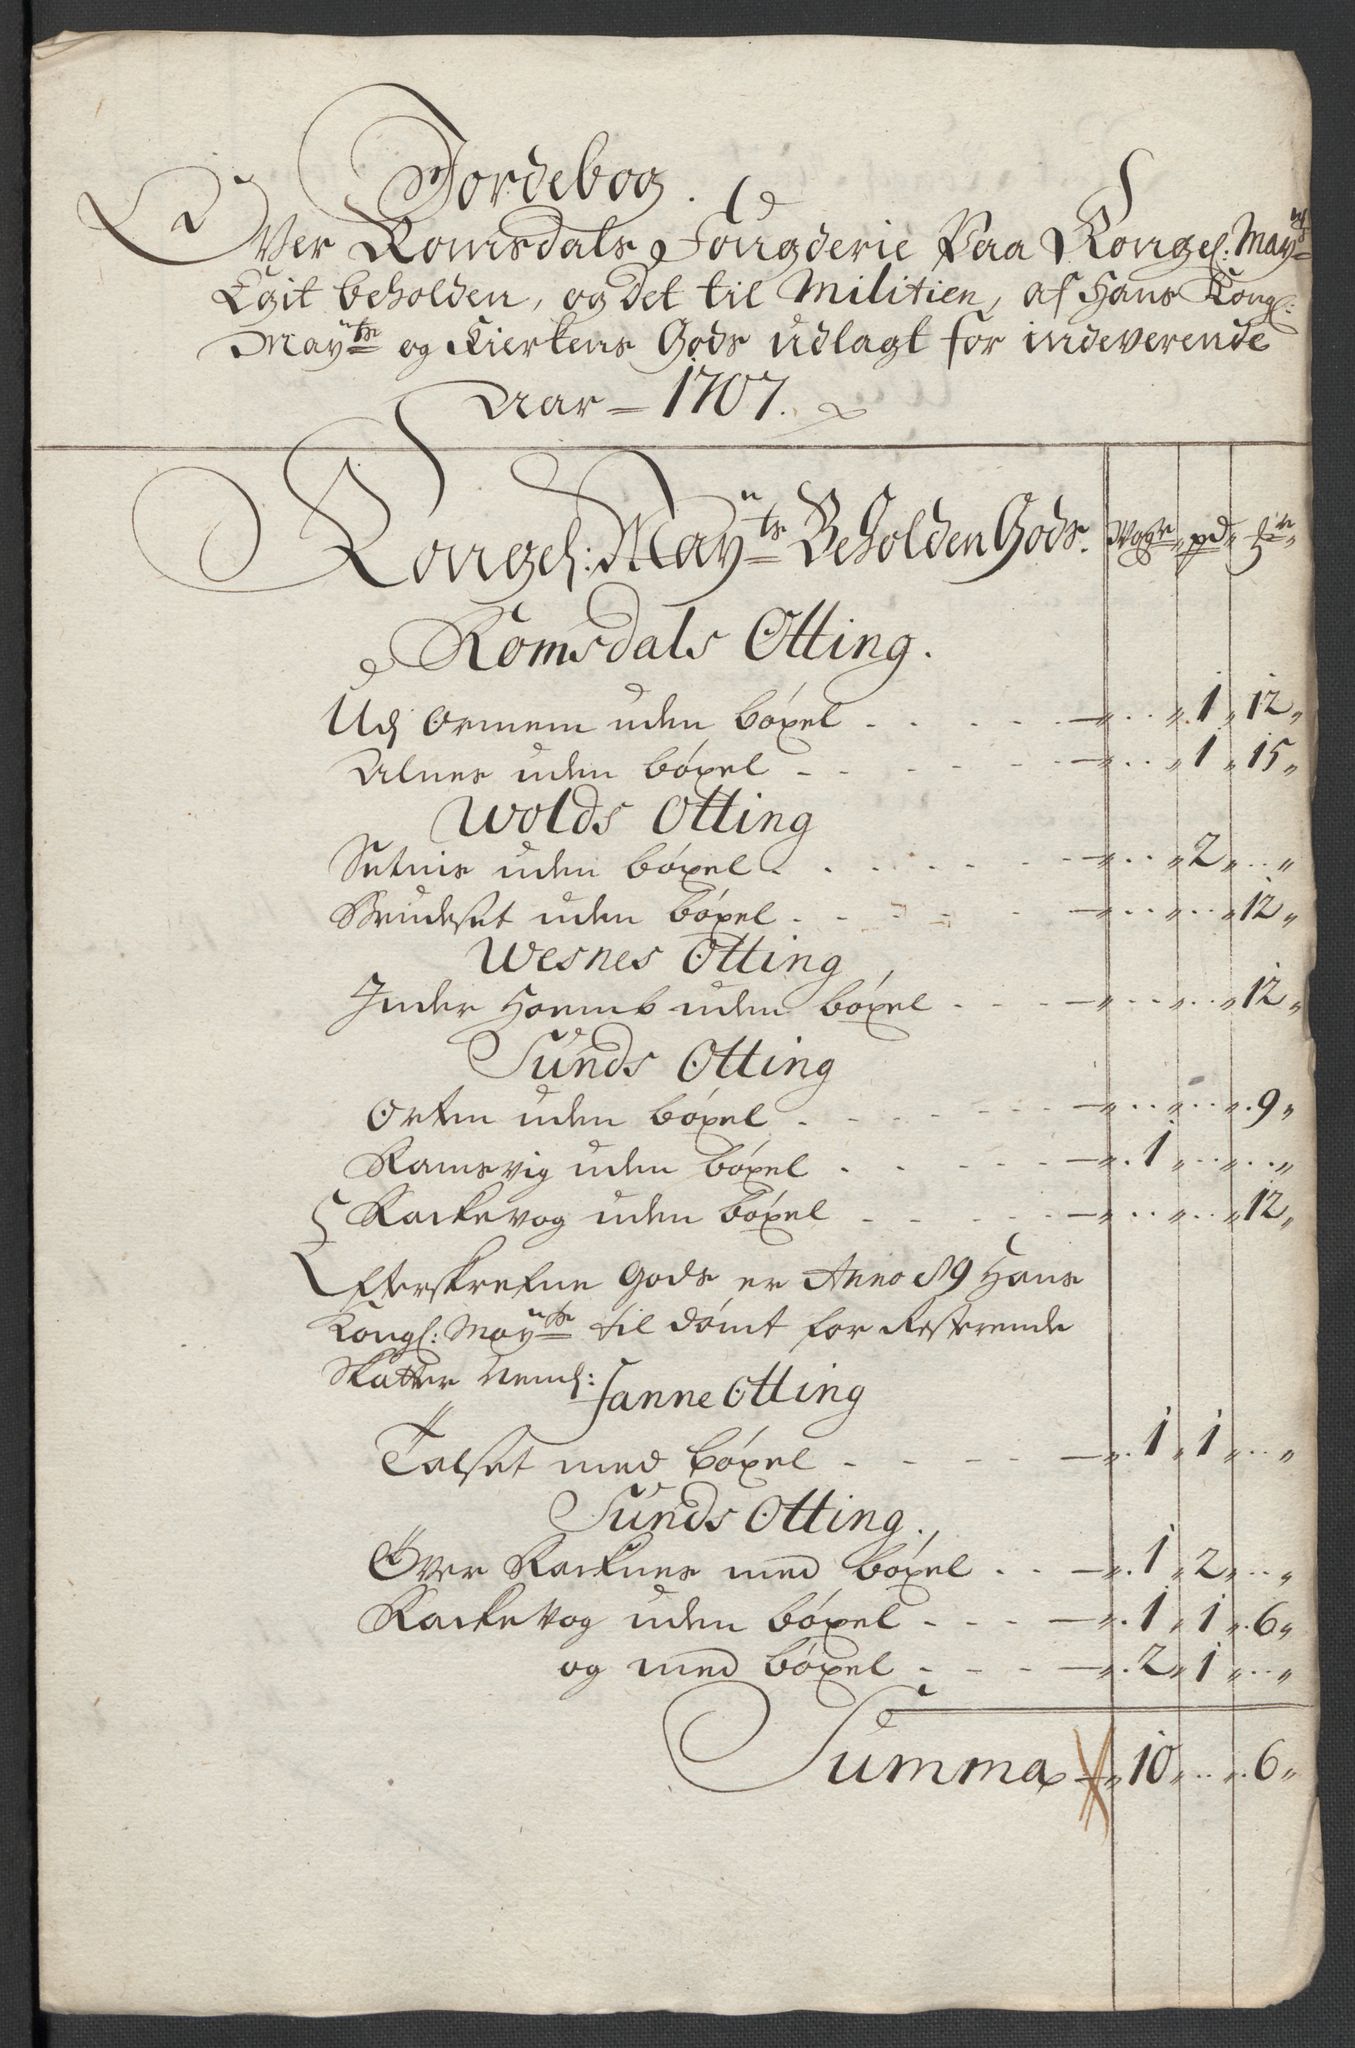 Jordebog.
Over Romsdals Fougderie Paa Kongel: May:ts
Egit beholden, og det til Militien, af Hans Kongl:
May:ts og Kierkens Gods udlagt for indeverende
Aar - 1707.
Kongel: May:ts Beholden Gods. Woger pd
Romsdals Otting.
Udj Ormem uden böxel - 1 12
Alnes uden böxel - 1 15
Wolds Otting
Setnis uden böxel - 2
Brudeset uden böxel - 12
Wesnes Otting
Inder Horemb uden böxel - 12
Sunds Otting
Orten uden böxel - 9
Ramsvig uden böxel - 1
Rackevog uden böxel - 12
Efterskrefne Gods er Anno 89 Hans
Kongl: May:ts til dömt for Resterende
Skatter Neml:
Fanne Otting
Talset med böxel - 1 1
Sunds Otting.
Över Racknes med böxel - 1 2
Rackevog uden böxel - 1 1 6
og med böxel - 2 1
Summa 10 6